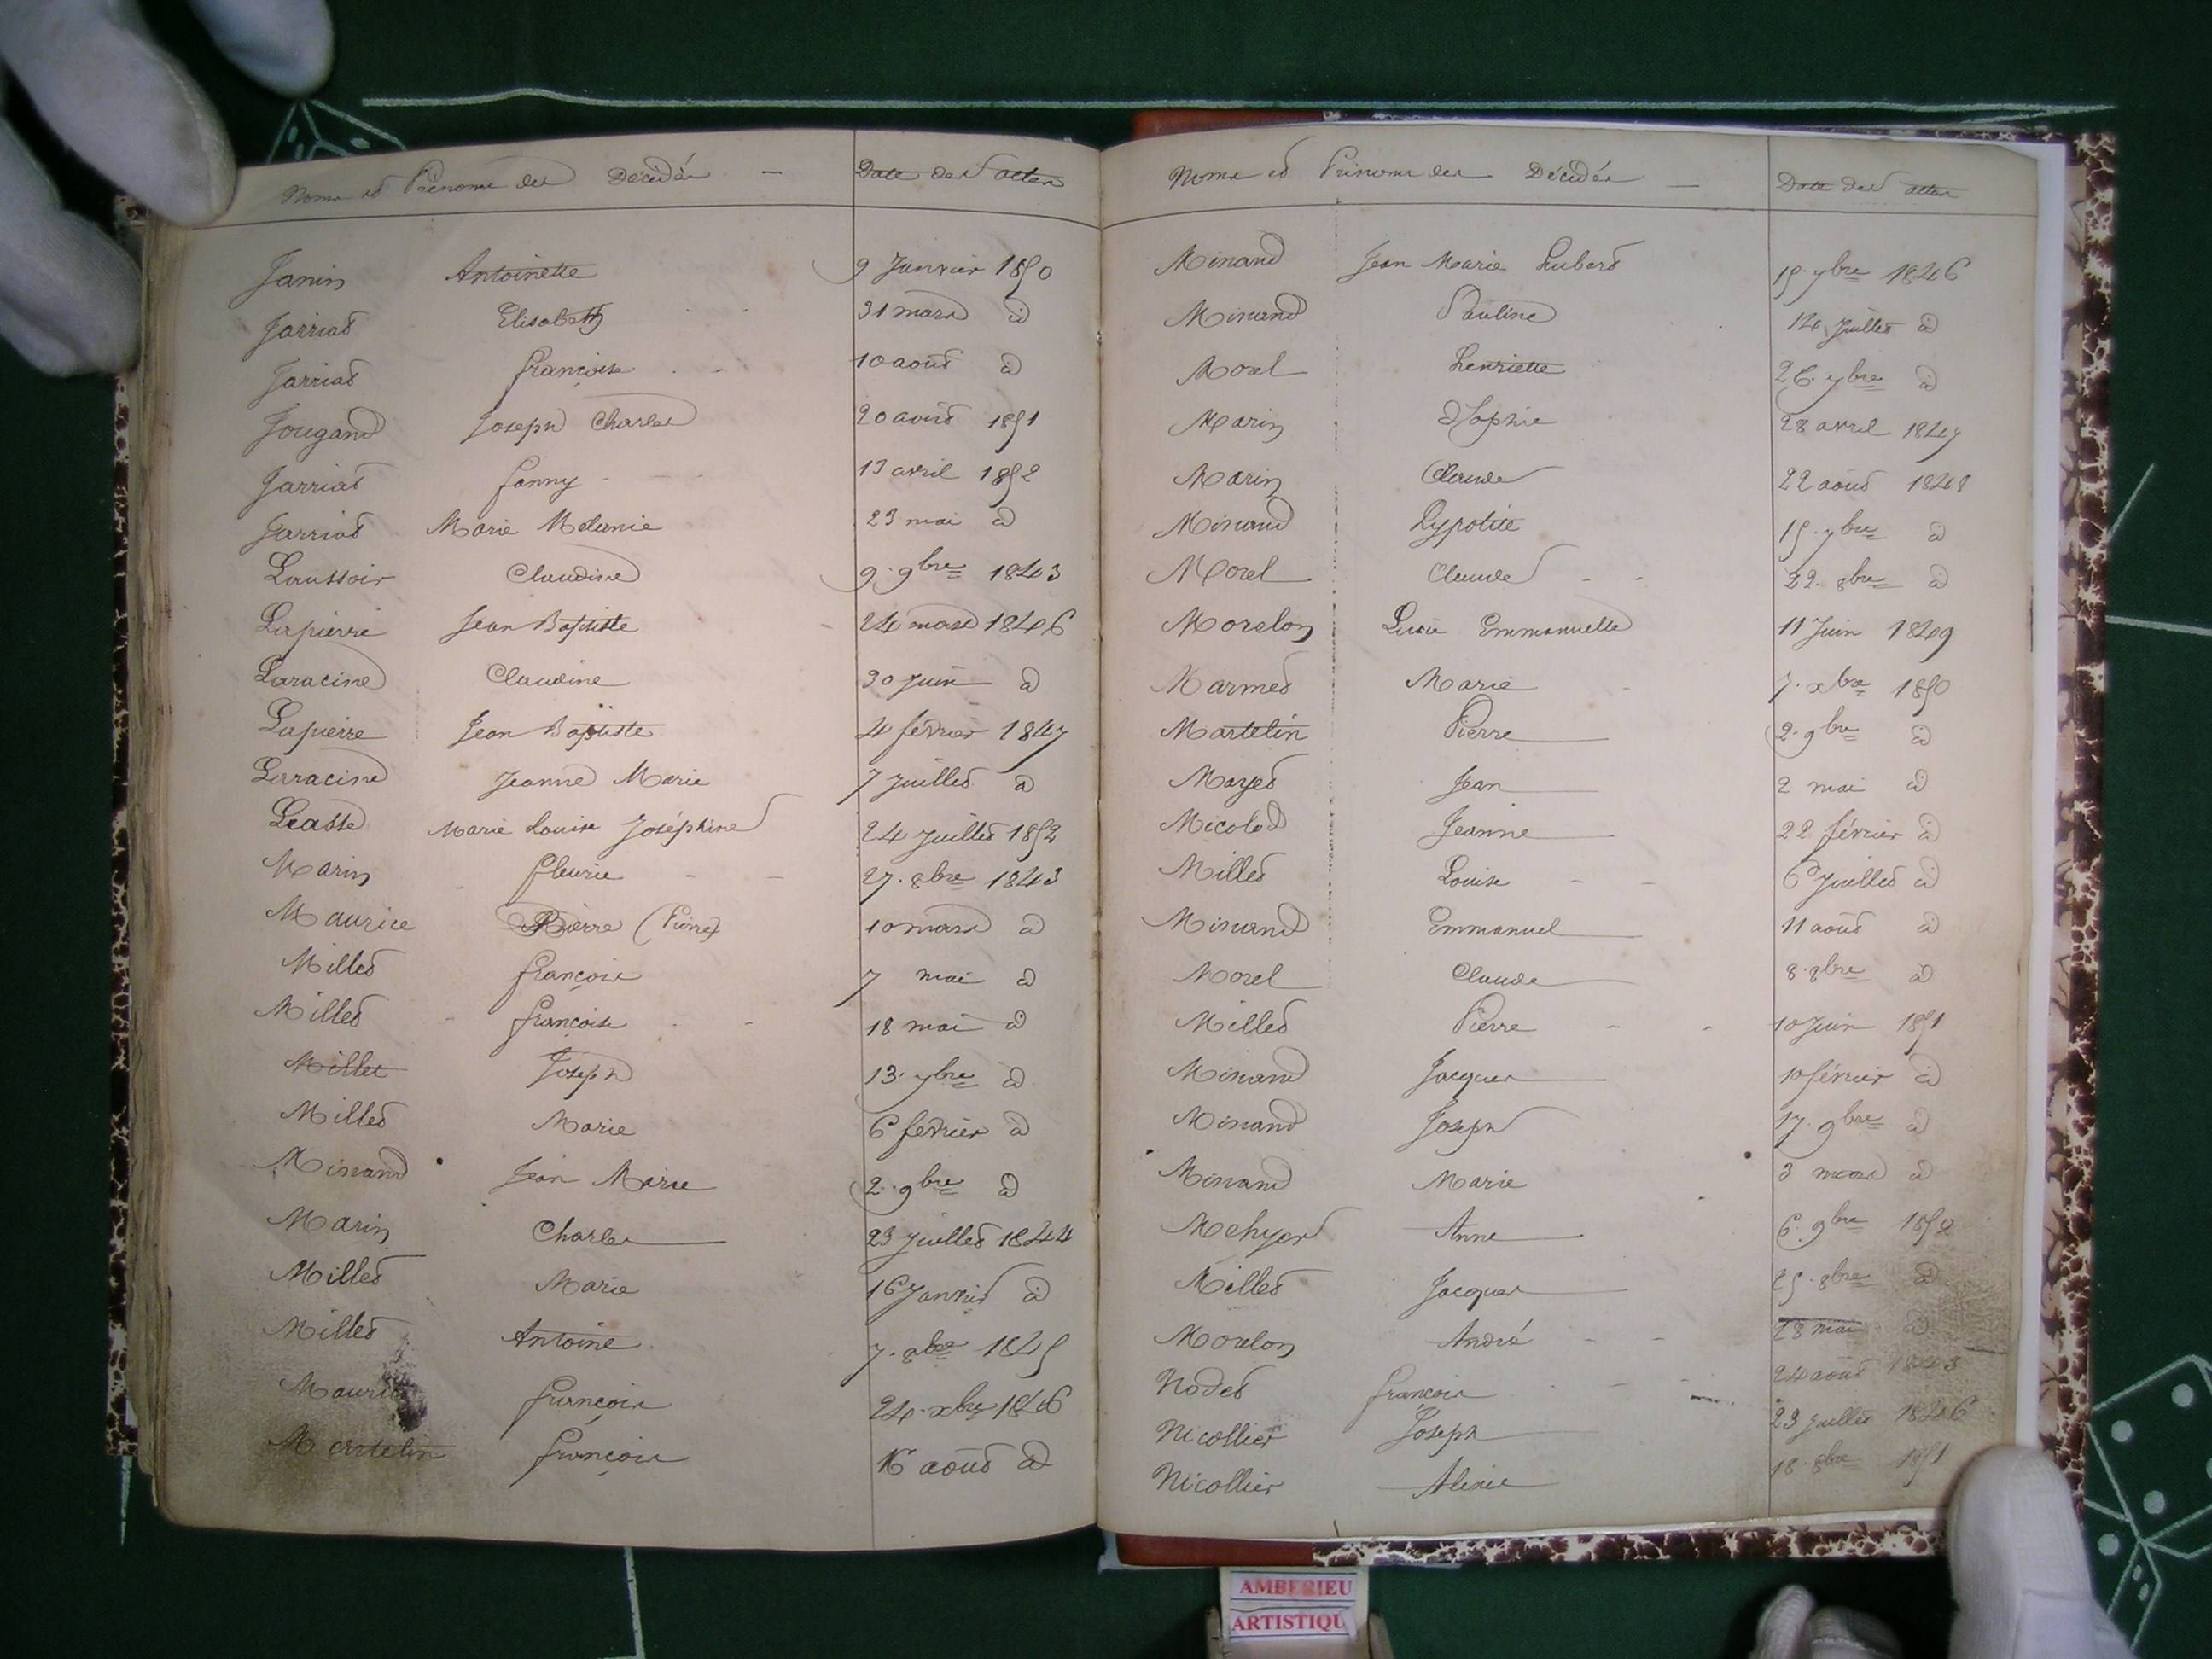 Noms et Prénoms des Décédés — Date des actes
Janin Antoinette 9 Janvier 1850
Jarriat Elisabeth 31 mars id
Jarriat françoise 10 août id
Jougand Joseph Charles 20 août 1851
Jarriat fanny 13 avril 1852
Jarriat Marie Mélanie 23 mai id
Laussoir Claudine 9. 9bre 1843
Lapierre Jean Baptiste 24 mars 1846
Laracine Claudine 30 juin id
Lapierre Jean Baptiste 4 février 1847
Laracine Jeanne Marie 7 juillet id
Liasse Marie Louise Joséphine 24 juillet 1852
Marin fleurie 27. 8bre 1843
Maurice Pierre (Pierre) 10 mars id
Millet françois 7 mai id
Millet françoise 18 mai id
Millet Joseph 13. 7bre id
Millet Marie 6 février id
Minand Jean Marie 2. 9bre id
Marin Charles 23 juillet 1844
Millet Marie 16 Janvier id
Millet Antoine 7. 8bre 1845
Maurice françois 24. xbre 1846
Martelin françois 16 août id
Noms et Prénoms des Décédés — Date des actes
Minand Jean Marie Hubert 15. 7bre 1846
Minand Pauline 14 Juillet id
Morel henriette 26. 7bre id
Marin Sophie 28 avril 1847
Marin Claude 22 août 1848
Minand Hypolite 15. 7bre id
Morel Claude 22. 8bre id
Morelon Lucie Emmanuelle 11 Juin 1849
Marmet Marie 7. xbre 1850
Martelin Pierre 2. 9bre id
Mayet Jean 2 mai id
Micolod Jeanne 22 février id
Millet Louise 6 Juillet id
Minand Emmanuel 11 août id
Morel Claude 8. 8bre id
Millet Pierre 10 Juin 1851
Minand Jacques 10 février id
Minand Joseph 17. 9bre id
Minand Marie 3 mars id
Anne 6. 9bre 1852
Millet Jacques 25. 8bre id
Morelon André 28 mai id
Nodet françois 24 août 1843
Nicollier Joseph 23 juillet 1846
Nicollier Alexis 18. 8bre 1851
AMBERIEU
ARTISTIQU